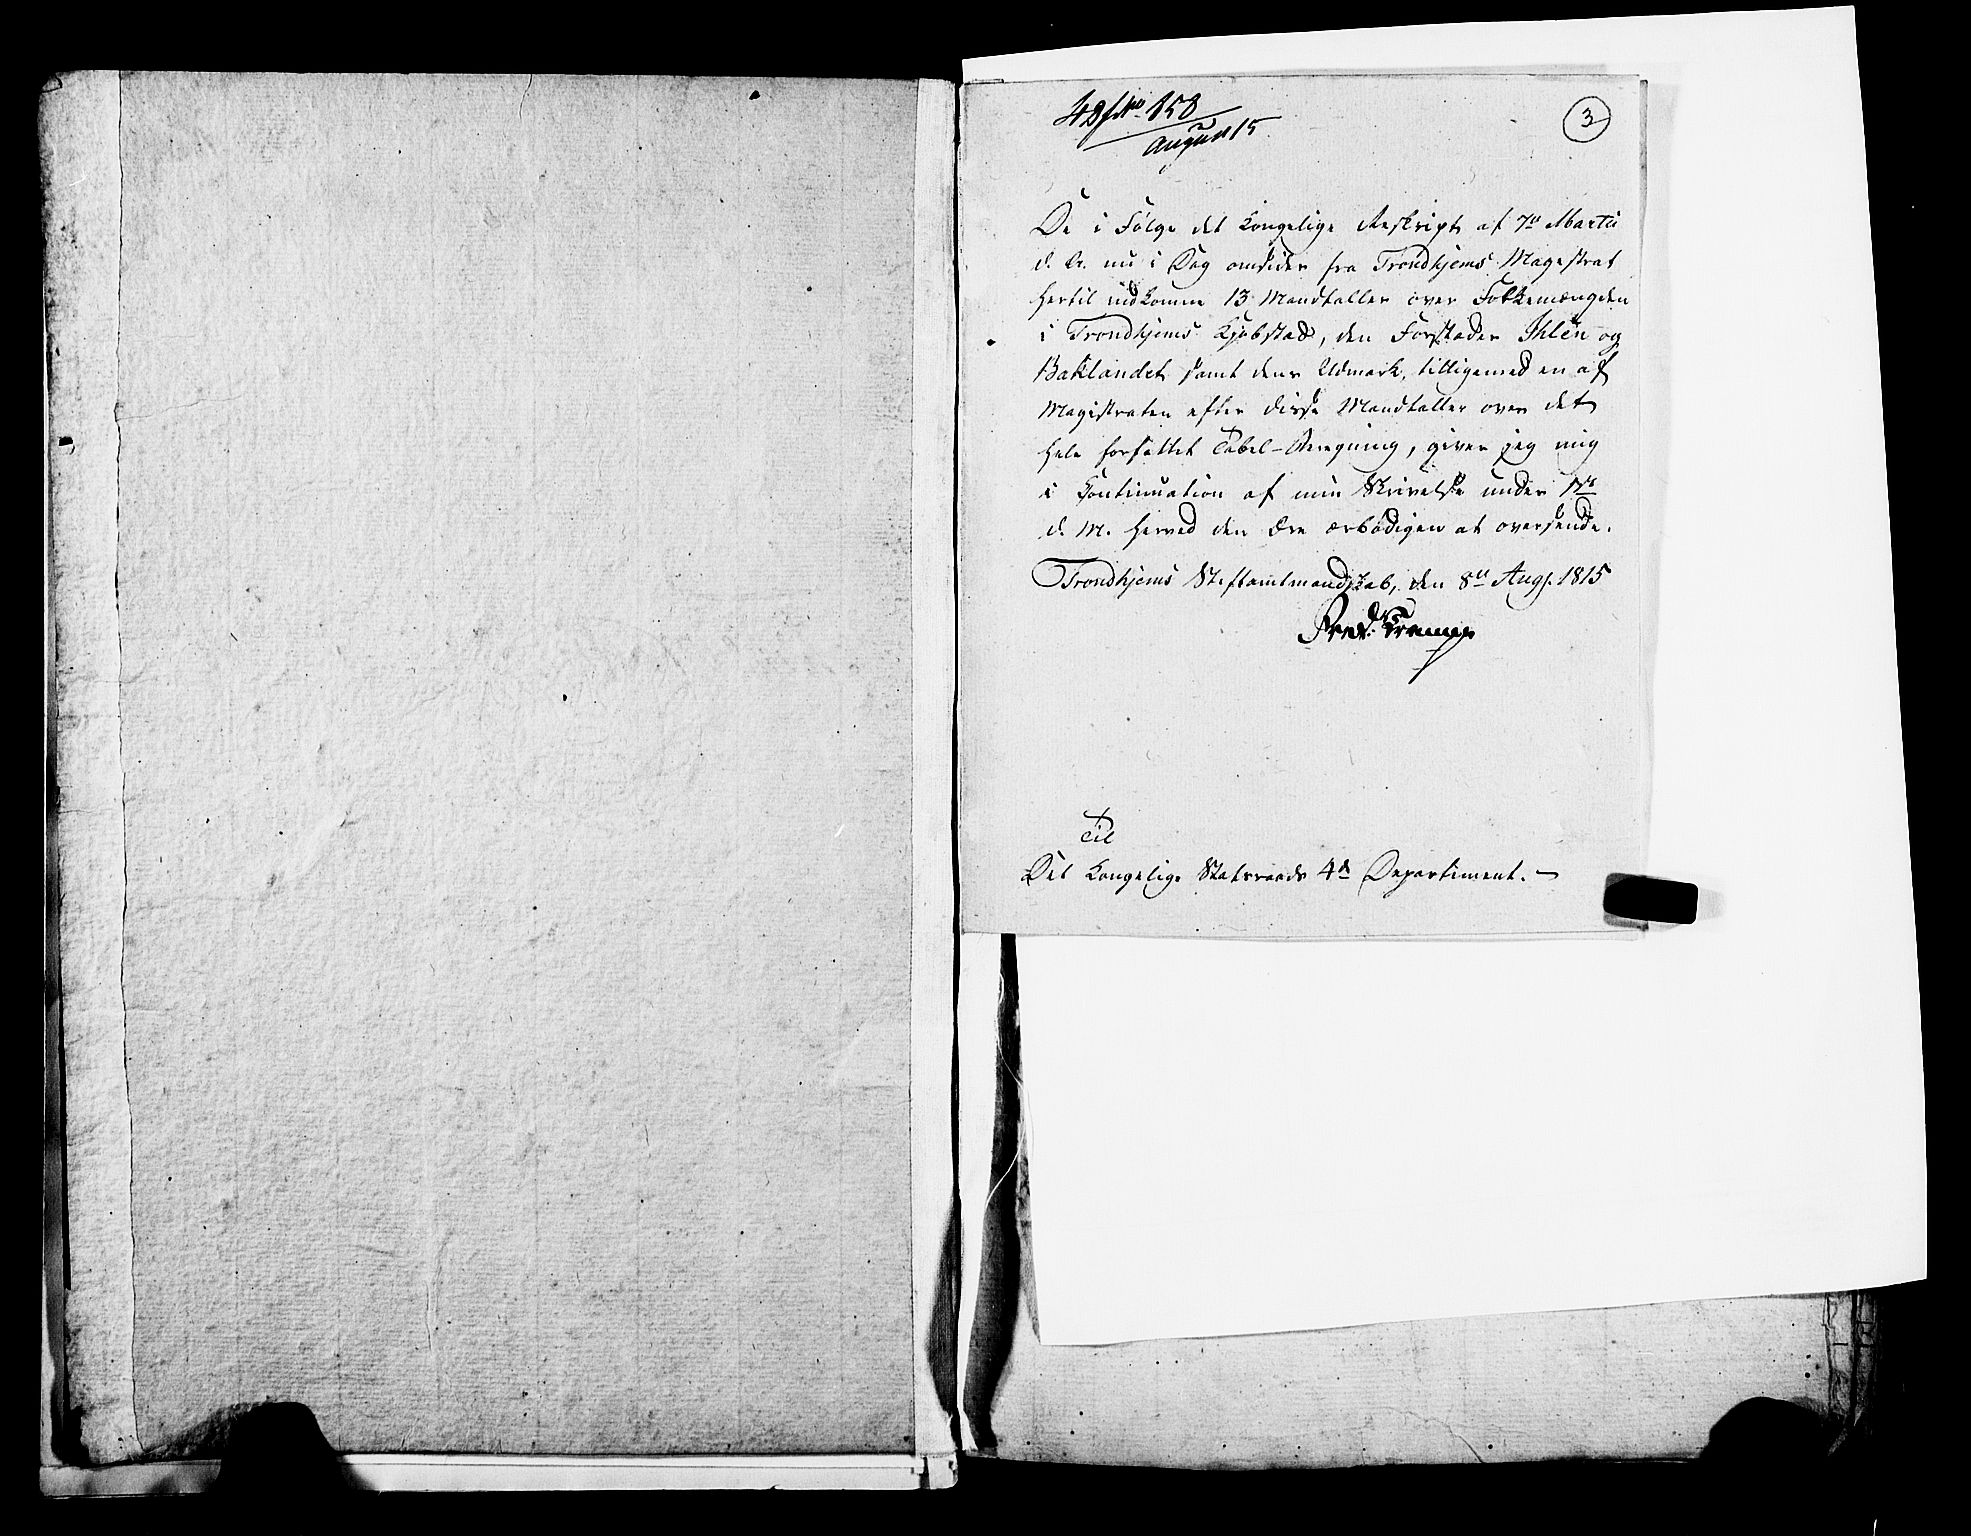 858
August 15
3
De i Følge det kongelige Reskript af 7de Martii
d. A. nu i Dag omsider fra Trondhjems Magistrat
hertil indkomne 13 Mandtaller over Folkemængden
i Trondhjems Kjøbstad, den Forstæder Ihlen og
Baklandet samt dens Udmark, tilligemed en af
Magistraten efter disse Mandtaller over det
hele forfattet Tabel-Beregning, giver jeg mig
i Continuation af min Skrivelse under
d. M. herved den Ære ærbødigen at oversende.
Trondhjems Stiftamtmandskab, den 8de Augs. 1815
Fred.
Til
Det kongelige Statsraads 4de Departement. –